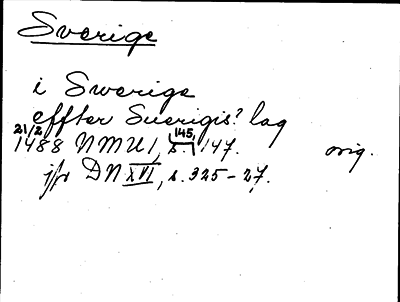 Sverige
i Swerige
effter Suerigis? lag
21/2 145,
1488 NMU 1, s. 147. orig.
jfr DN XVI, s. 325-27.